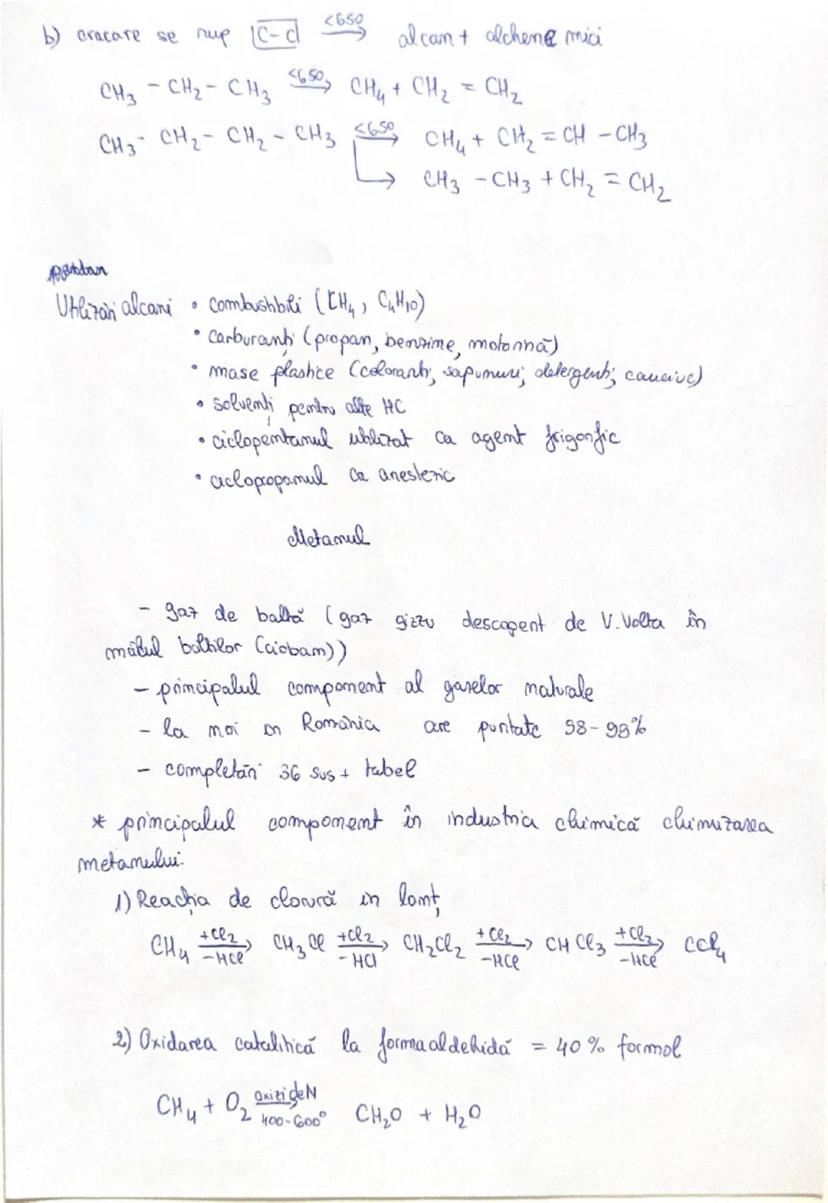 b) cracare se rup C-C <650 → alcan + alchene mici
CH3 - CH2 - CH3 <650 → CH4 + CH2 = CH2
CH3 - CH2 - CH2 - CH3 <650 → CH4 + CH2 = CH - CH3
→ CH3 - CH3 + CH2 = CH2
Utilizări alcani • combustibili (CH4, C4H10)
• carburanți (propan, benzine, motorină)
• mase plastice (coloranți, săpunuri, detergenți, cauciuc)
• solvenți pentru alte HC
• ciclopentanul utilizat ca agent frigorific
• ciclopropanul ca anestezic
Metanul
- gaz de baltă (gaz descoperit de V. Volta în
mâlul bălților (ciobani))
- principalul component al gazelor naturale
- la noi în România are puritate 98-99%
- completări 36 sus + tabel
* principalul component în industria chimică chimizarea
metanului:
1) Reacția de clorură în lanț
CH4 +Cl2 → -HCl CH3Cl +Cl2 → -HCl CH2Cl2 +Cl2 → -HCl CHCl3 +Cl2 → -HCl CCl4
2) Oxidarea catalitică la formaaldehidă = 40% formol
CH4 + O2 oxizi de N → 400-600° CH2O + H2O